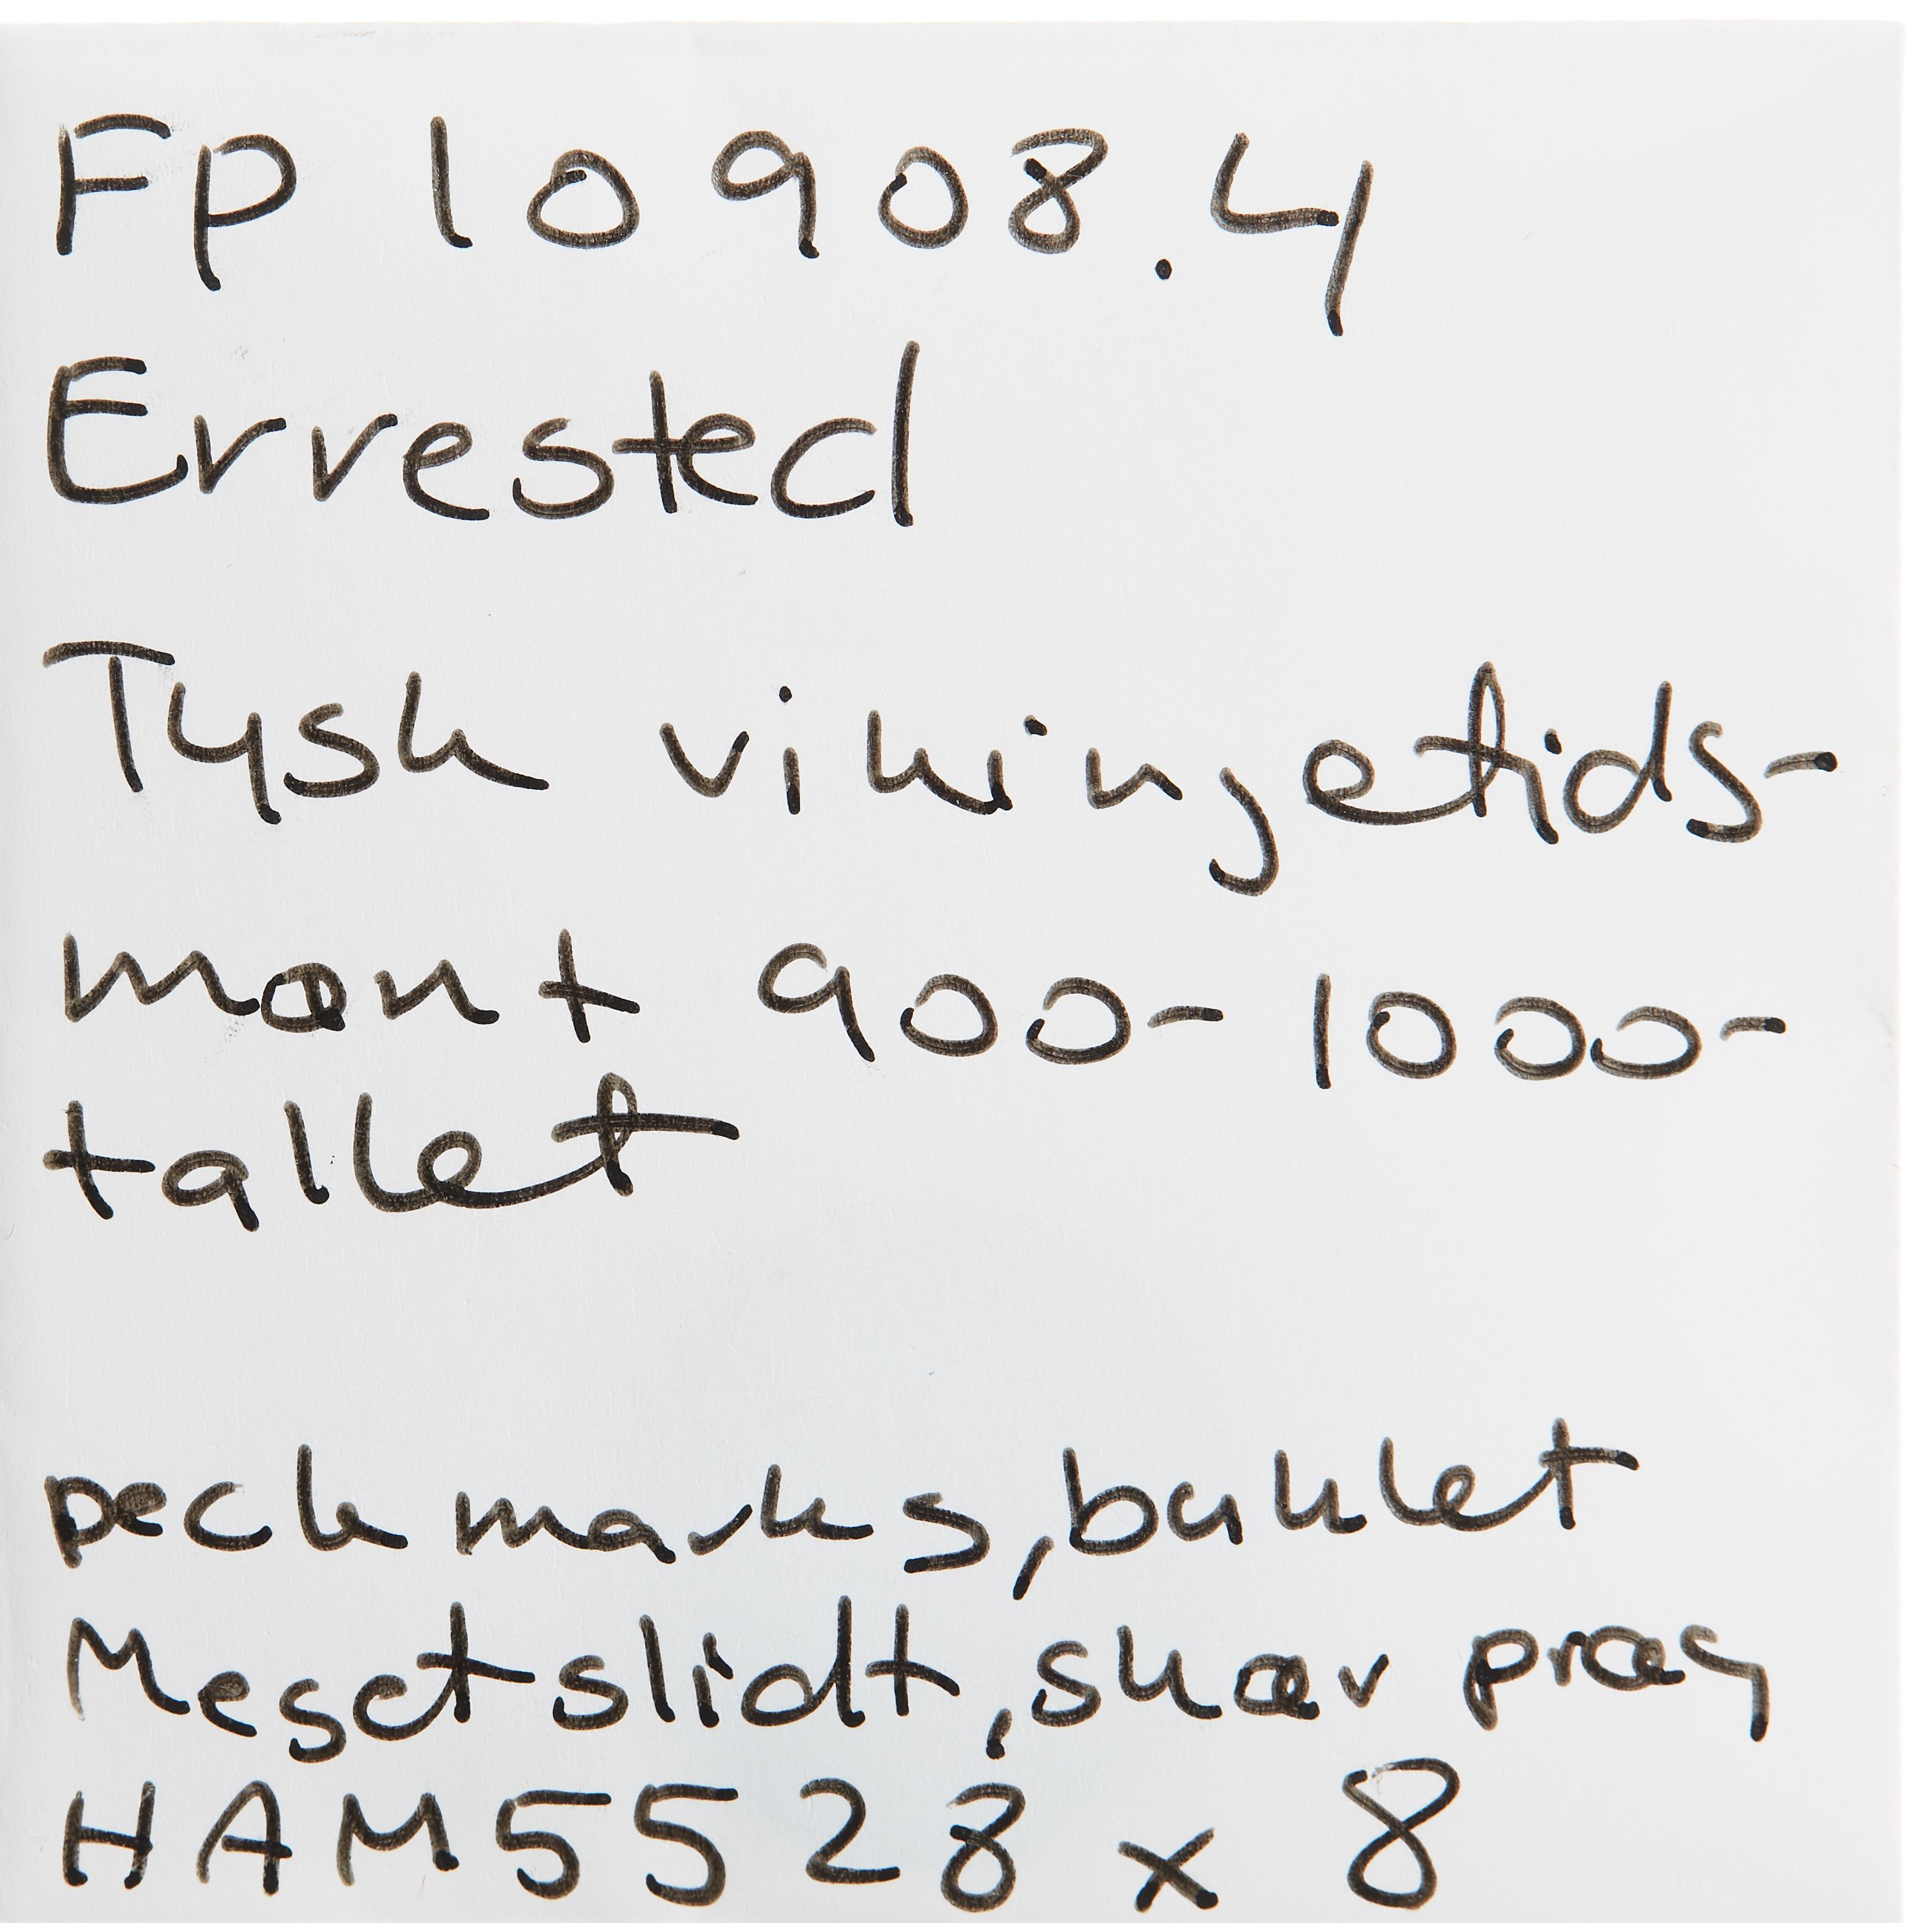 Fp 10908.4
Errested
Tysk vikingetids-
mønt 900-1000-
tallet
peck marks, buklet
Meget slidt, skæv præg
HAM5528 x 8